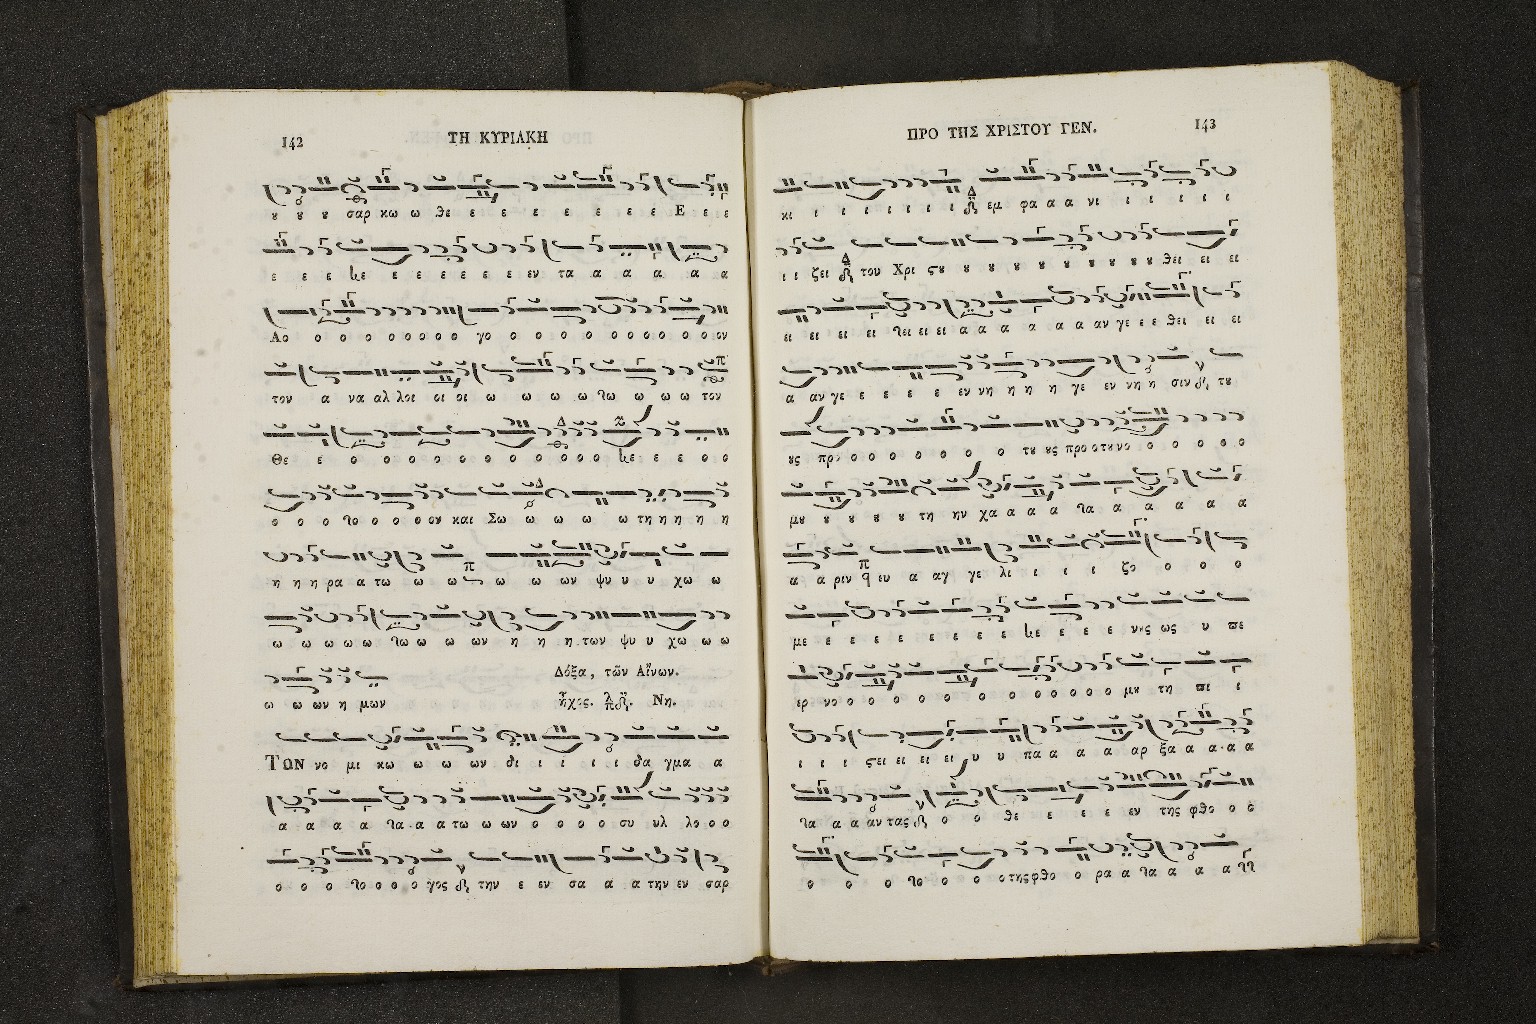 142 ΤΗ ΚΥΡΙΑΚΗ
ȣ ȣ ȣ σαρ κω ω θε ε ε ε ε ε ε ε ε Ε ε ε
ε ε ε ε ε ε ε ε ε εν τα α α α α α
Λο ο ο ο ο ο ο ο ο γο ο ο ο ο ο ο ο ο ο ο ον
τον α να αλ λοι οι οι ω ω ω ω ω ω ω τον
Θε ε ο ο ο ο ο ο ο ο ο ο ε ε ο ο
ο ο ο ο ο ο ο ον και Σω ω ω ω ω τη η η η η
η η η ρα α τω ω ω ω ω ων ψυ υ υ χω ω
ω ω ω ω ω ω ω ων η η η των ψυ υ χω ω ω
ω ω ων η μων
Δόξα, τῶν Αἴνων.
ἦχος. Νη.
ΤΩΝ νο μι κω ω ω ων δι ι ι ι ι δα γμα α
α α α α α α τω ω ων ο ο ο ο συ υλ λο ο ο
ο ο ο ο ο ο γος την ε εν σα α α την εν σαρ
ΠΡΟ ΤΗΣ ΧΡΙΣΤΟΥ ΓΕΝ. 143
κι ι ι ι ι ι ι ι εμ φα α α νι ι ι ι ι ι
ι ι ζει του Χρι ϛȣ ȣ ȣ ȣ ȣ ȣ ȣ ȣ ȣ ȣ ȣ θει ει ει
ει ει ει ει ει ει ει α α α α α α αν γε ε ε θει ει ει
α αν γε ε ε ε ε εν νη η η η γε εν νη η σιν τȣ
ȣς προ ο ο ο ο ο ο ο τȣ ȣς προ ο τȣ νο ο ο ο ο ο
μȣ ȣ ȣ ȣ ȣ τη ην χα α α α α α α α α
α α ριν ευ α αγ γε λι ι ι ι ζο ο ο ο
με ε ε ε ε ε ε ε ε ε ε ε νȣς ως υ πε
ερ νο ο ο ο ο ο ο ο ο ο ο ο ο μȣ τη πι ι
ι ι ι ϛει ει ει ει υ υ πα α α α α αρ ξα α α α α
α α αν τας ο ο θε ε ε ε εν της φθο ο ο
ο ο ο ο ο της φθο ο ρα α α α α